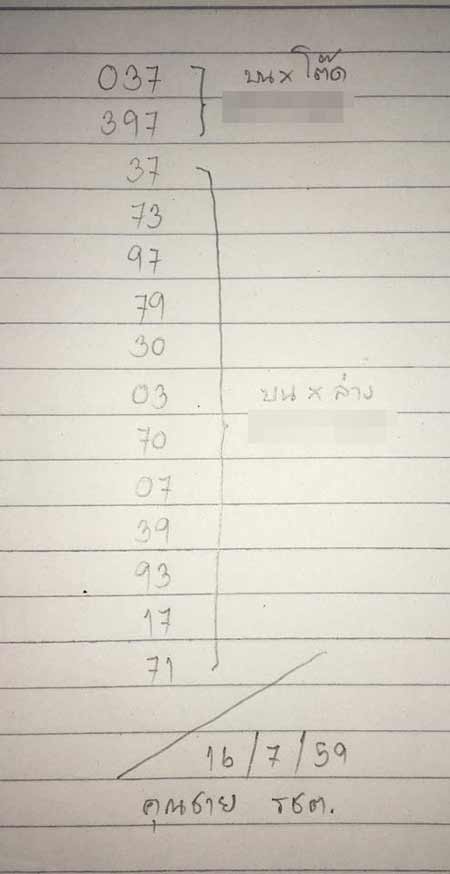 037 บน × โต๊ด
397
37
73
97
79
30
03 บน × ล่าง
70
07
39
93
17
71
16/7/59
คุณชาย รชต.